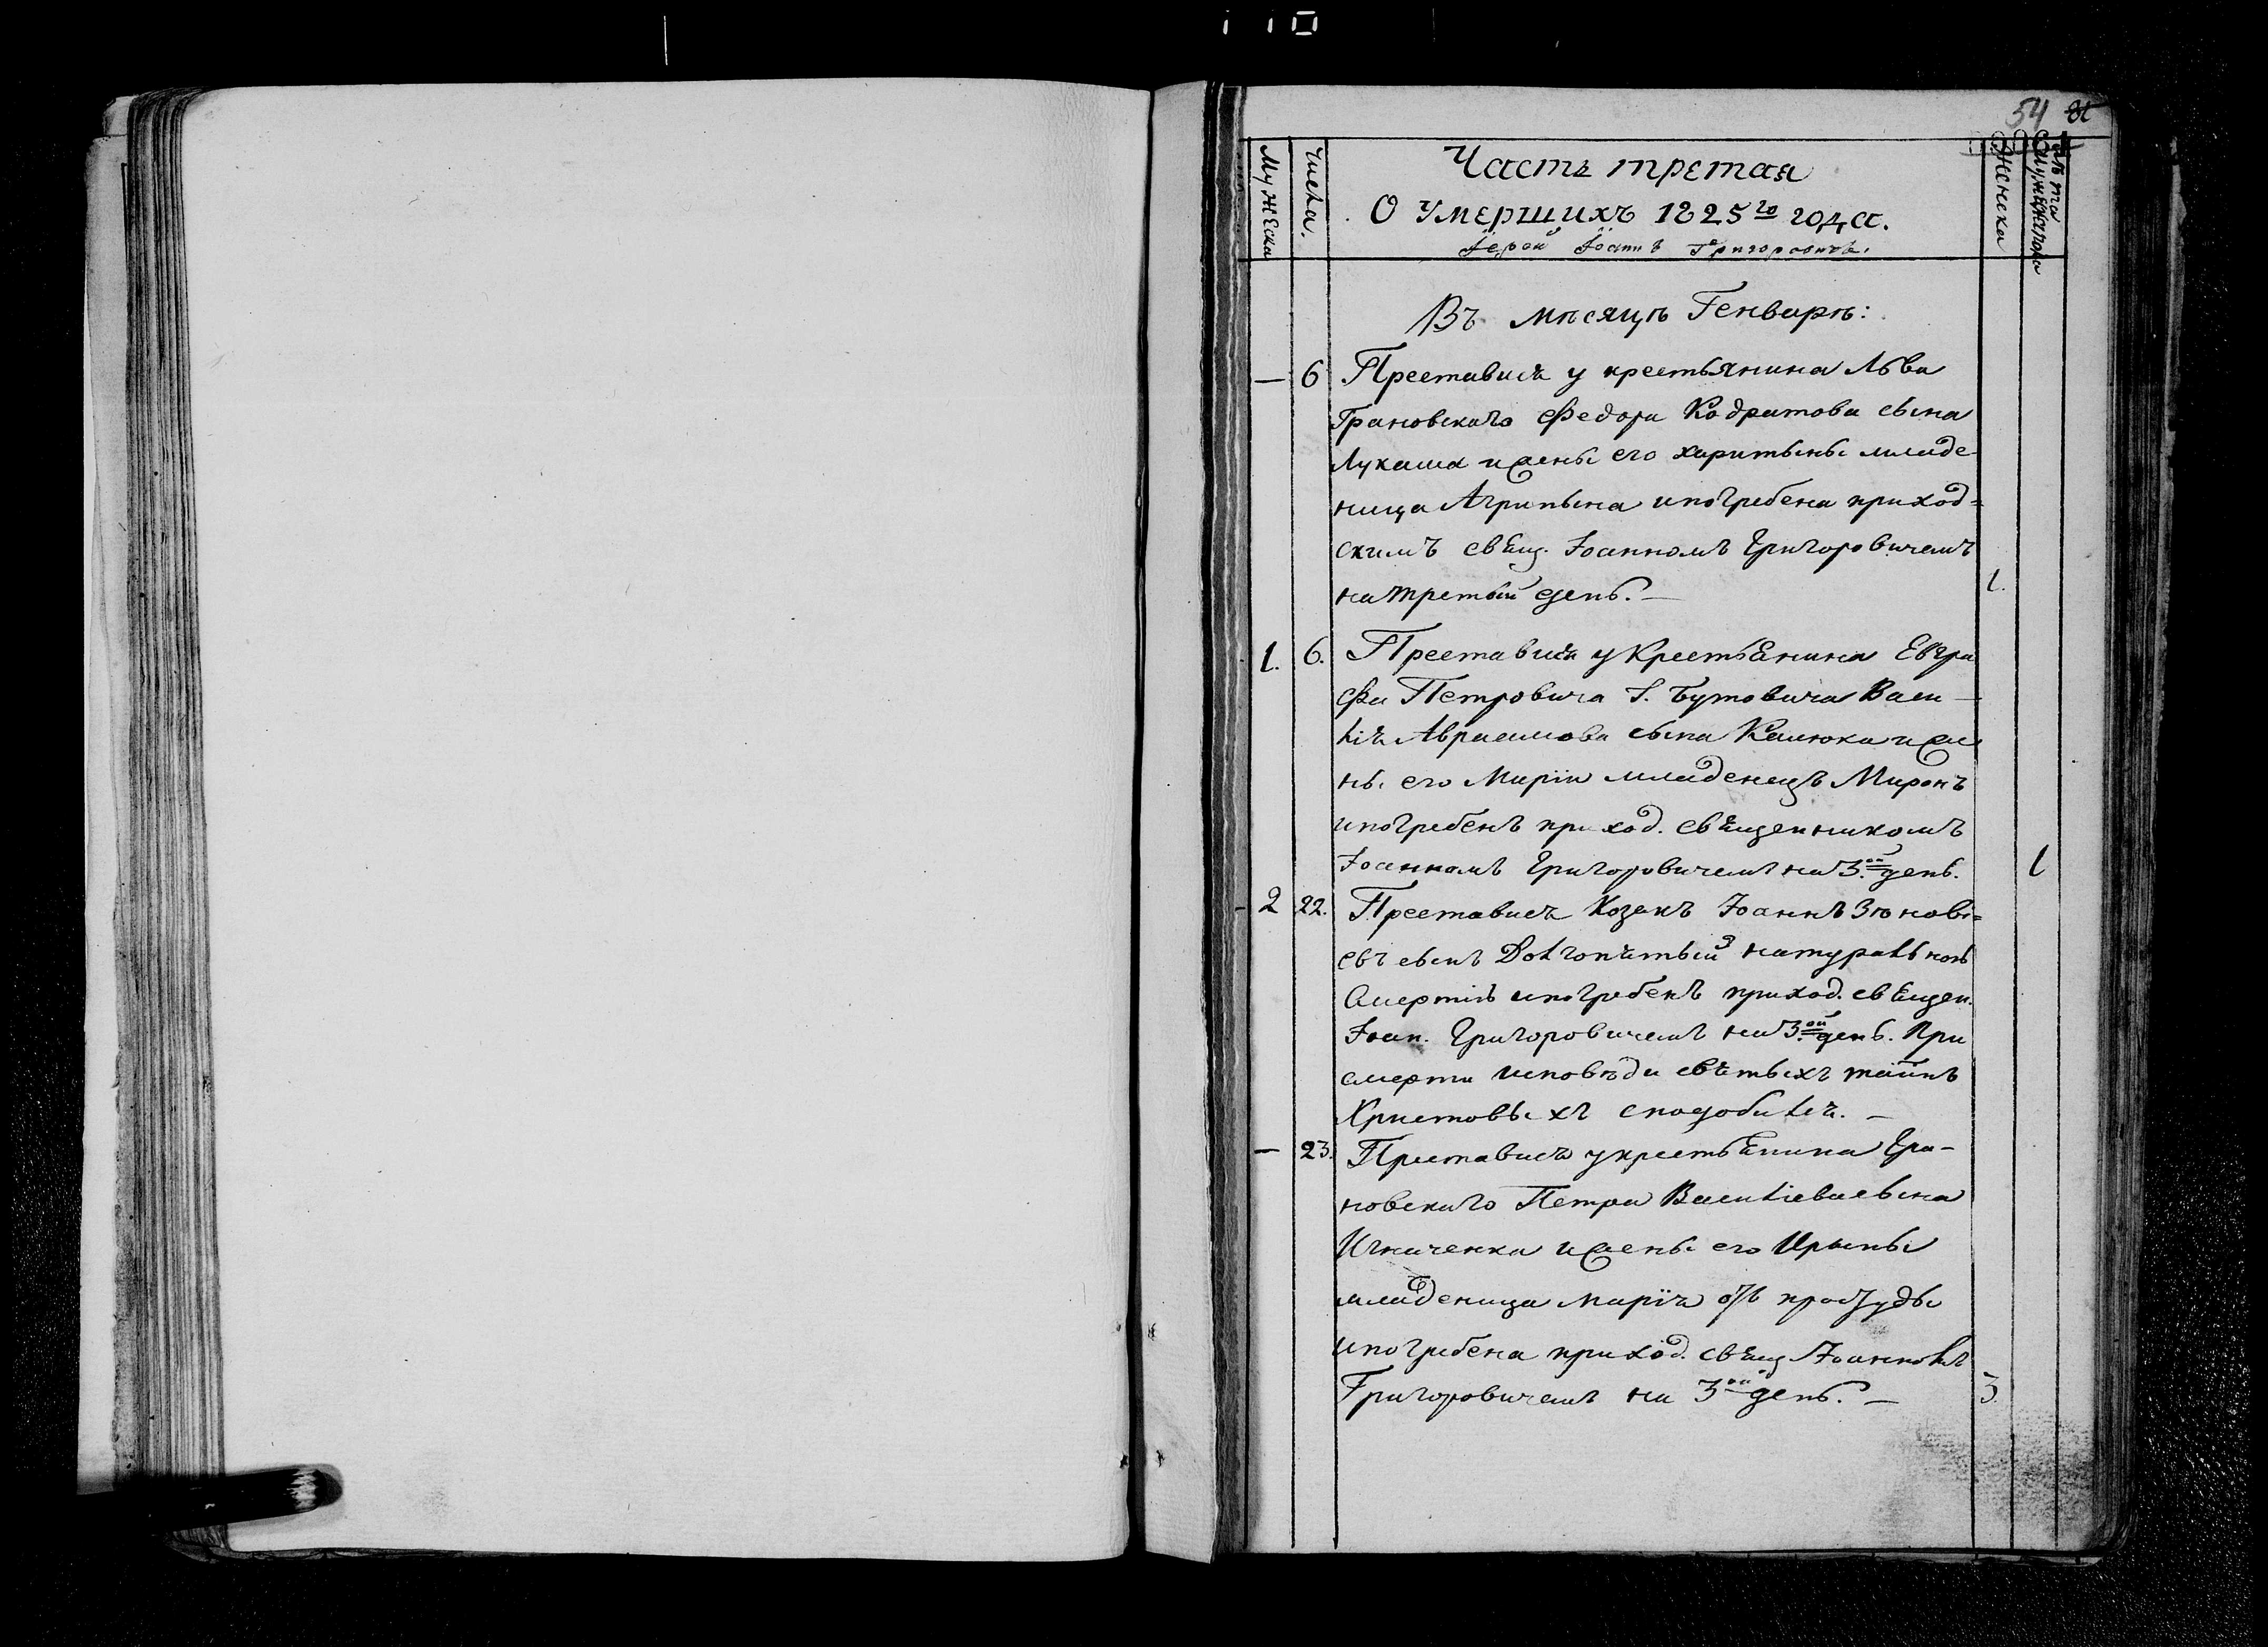 54
Мужеска
Числа.
Часть третая
О Умершихъ 1825го года.
Іерей Іоаннъ Григоровичь.
Женска
лѣта
Въ мѣсяцѣ Генварѣ:
— 6 Преставися у крестьянина Льва
Грановскаго Федора Кодратова сына
Лукаша и жены его Харитыны младе-
ница Агрипына и погребена приход=
скимъ свящ. Іоанномъ Григоровичемъ
на третый день. — 1.
1. 6. Преставися у крестьянина Евгра
фа Петровича Г. Бутовича Васи—
лія Авраамова сына Калюжи и же
ны его Маріи младенецъ Миронъ
и погребенъ приход. священникомъ
Іоанномъ Григоровичемъ на 3ой день. 1
2 22. Преставися Козакъ Іоаннъ Зѣнові=
евъ сынъ Долгопятый натуральною
смертію и погребенъ приход. священ.
Іоан. Григоровичемъ на 3ой день. При
смерти исповѣди святыхъ таинъ
Христовыхъ сподобился. —
— 23. Преставися у крестьянина Гра-
новскаго Петра Василіева сына
Игначенка и жены его Ирыны
младеница Марія отъ простуды
и погребена приход. свящ Іоанномъ
Григоровичемъ на 3ой день. — 3.